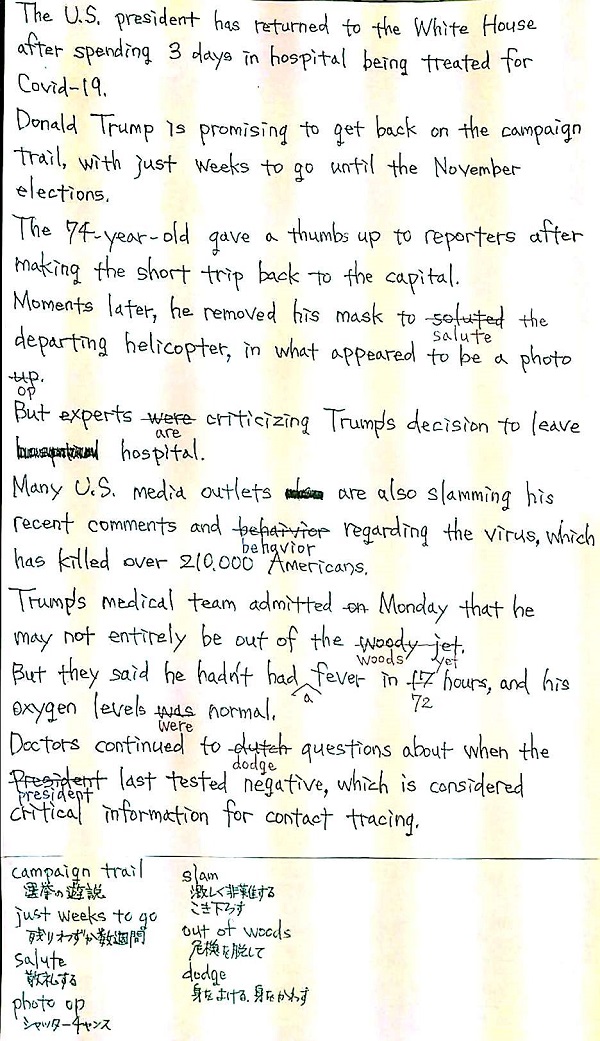 The U.S. president has returned to the White House
after spending 3 days in hospital being treated for
Covid-19.
Donald Trump is promising to get back on the campaign
trail, with just weeks to go until the November
elections.
The 74-year-old gave a thumbs up to reporters after
making the short trip back to the capital.
Moments later, he removed his mask to saluted the
salute
departing helicopter, in what appeared to be a photo
up.
op
But experts were criticizing Trump's decision to leave
are
hospital.
Many U.S. media outlets are also slamming his
recent comments and behaivior regarding the virus, which
behavior
has killed over 210.000 Americans.
Trump's medical team admitted on Monday that he
may not entirely be out of the woody jet.
woods yet
But they said he hadn't had fever in 17 hours, and his
a 72
oxygen levels was normal.
were
Doctors continued to dutch questions about when the
dodge
President last tested negative, which is considered
president
critical information for contact tracing.
campaign trail
選挙の遊説
just weeks to go
残りわずか数週間
salute
敬礼する
photo op
シャッターチャンス
slam
激しく非難する
こき下ろす
out of woods
危険を脱して
dodge
身をよける、身をかわす